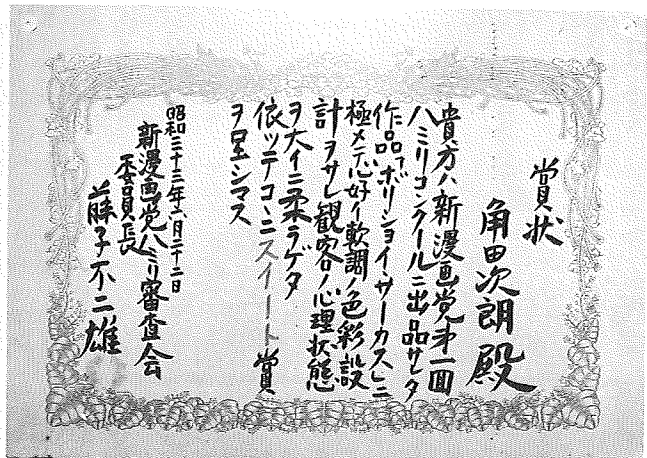 賞状
角田次朗殿
貴方ハ新漫画党才一回
八ミリコンクールニ出品サレタ
作品『ボリショイサーカス』ニ
極メテ心好イ軟調ノ色彩設
計ヲサレ観客ノ心理状態
ヲ大イニ柔ラゲタ
依ッテココニスイート賞
ヲ呈シマス
昭和三十三年六月二十二日
新漫画党八ミリ審査会
委員長
藤子不二雄